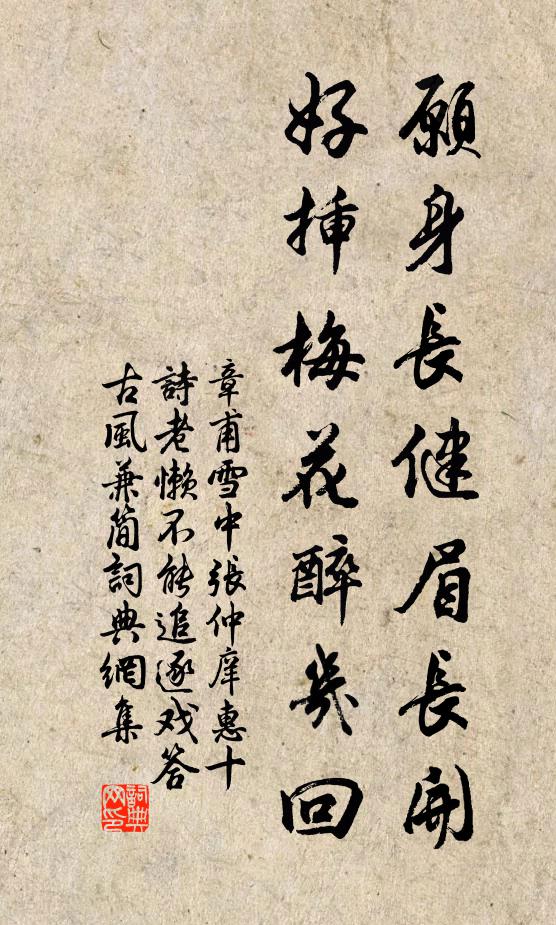 願身長健眉長開
好揷梅花醉幾回
章甫雪中張仲庠惠十
詩老懶不能追逐戏答
古風兼簡詞典網集
詞典
网印